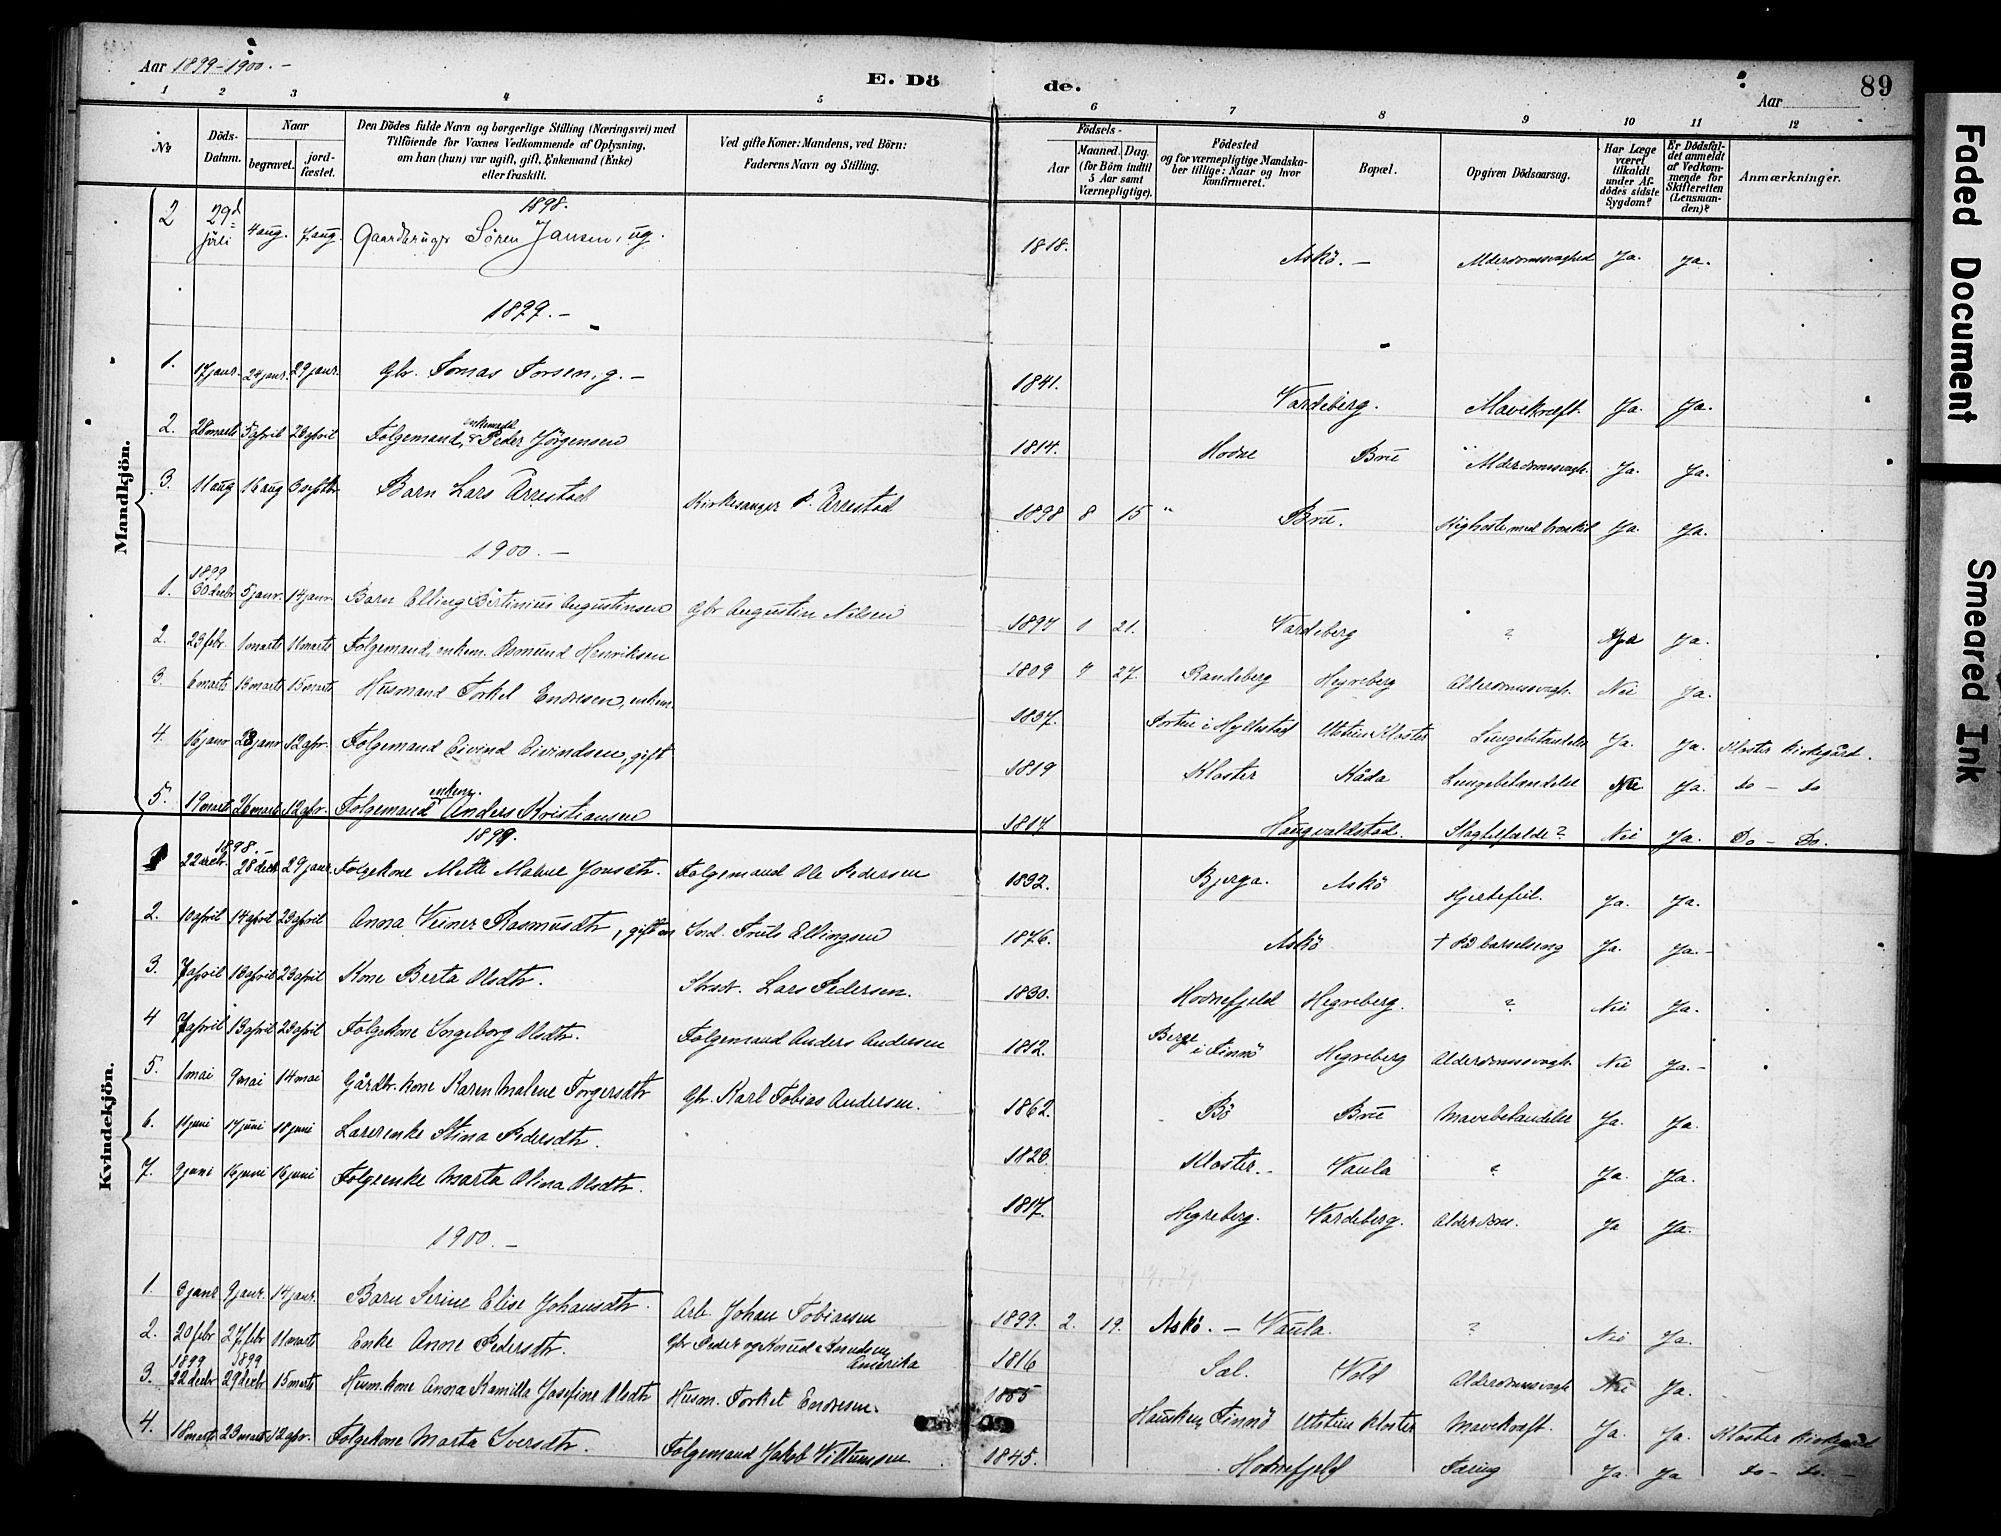 Aar 1899-1900.-
E. Dö de.
Aar
89
1 2 3 4 5 6 7 8 9 10 11 12
No
Döds-Datum.
Naar
begravet.
jord-fæstet.
Den Dödes fulde Navn og borgerlige Stilling (Næringsvei) med
Tilföiende for Voxnes Vedkommende af Oplysning,
om han (hun) var ugift, gift, Enkemand (Enke)
eller fraskilt.
Ved gifte Koner: Mandens, ved Börn:
Faderens Navn og Stilling.
Födsels-
Aar
Maaned. Dag.
(for Börn indtil
5 Aar samt
Værnepligtige).
Födested
og for værnepligtige Mandska-
ber tillige: Naar og hvor
konfirmeret.
Bopæl.
Opgiven Dödsaarsag.
Har Læge
været
tilkaldt
under Af-
dödes sidste
Sygdom?
Er Dödsfal-
det anmeldt
af Vedkom-
mende for
Skifteretten
(Lensman-
den)?
Anmærkninger.
Mandkjön.
1898.
2 29d juli 4 aug. 7 aug. Gaardbruger Sören Jansen, ug. 1818. Askö. - Alderdomssvaghed Ja. Ja.
1899.-
1. 17 janr. 24 janr. 29 janr. Gbr. Tomas Torsen, g. - 1841. Vardeberg. Mavekræft. Ja. Ja.
2. 28 marts 5 april 23 april Folgemand, enkemand Peder Jörgensen 1814. Hodne Bru Alderdomssvagh. Ja. Ja.
3. 11 aug 16 aug 3 septbr Barn Lars Årrestad Kirkesanger P. Årrestad 1898 8 15 " Bru. Kighoste med bronkit Ja. Ja.
1900.-
1. 1899 30 decbr 5 janr. 14 janr. Barn Elling Bertinius Augustinsen Gbr Augustin Nilsen 1897 1 21. Vardeberg ? Ja Ja.
2. 23 febr. 1 marts 11 marts Folgemand, enkem. Osmund Henriksen 1809 9 27. Randeberg Hegreberg Alderdomssvagh. Nei Ja.
3. 6 marts 13 marts 15 marts Husmand Torkel Endresen, enkem. 1837. i Hyllestad Utstein Kloster Lungebetændelse Ja. Ja. Kloster kirkegård.
4. 16 janr 23 janr 12 apr. Folgemand Eivind Eivindsen, gift 1819 Kloster Kåda Lungebetændelse Nei Ja. do - do
5. 19 marts 26 marts 12 apr. Folgemand enkem. Anders Kristiansen 1817 Haugvaldstad. Slagtilfælde? Nei Ja. Do - Do.
Kvindekjön.
1899.
1 1898.- 22 decb. 28 decb 29 janr. Folgekone Mette Malene Jonsdtr. Folgemand Ole Pedersen 1832. Bjerga. Askö Hjertefeil. Ja. Ja.
2. 10 april 14 april 23 april Anna Veiner Rasmusdtr, gift m Truls Ellingsen 1876. Askö † På barselseng Ja. Ja.-
3. 7 april 13 april 23 april Kone Berta Olsdtr. Lars Pedersen. 1830. Hodnefjeld Hegreberg. ? Nei Ja.
4 7 april 13 april 23 april Folgekone Ingeborg Olsdtr. Folgemand Anders Andersen 1812. Berge i Finnö Hegreberg Alderdomssvagh. Nei Ja.-
5. 1 mai 9 mai 14 mai Gårdbr. kone Karen Malene Torgersdtr Gbr. Karl Tobias Andersen. 1862. Bö Bru Mavebetændelse Ja. Ja.
6. 11 juni 17 juni 18 juni Lærerenke Stina Pedersdtr. 1820. Kloster.- Vaula ? Ja. Ja.
7. 9 juni 16 juni 16 juni Folgeenke Marta Olina Olsdtr. 1817. Hegreberg. Vardeberg. Alderdom. Ja Ja.
1900.-
1. 3 janr 9 janr. 14 janr. Barn Serine Elise Johansdtr. Arb. Johan Tobiassen 1899. 2. 19. Askö. - Vaula. ? Nei Ja.
2. 20 febr 27 febr 11 marts Enke Anne Pedersdtr. Gbr Peder og Knud Knudsen Amerika 1816 Sæl. Vold Alderdomssvagh Nei Ja.
3. 1899 22 decbr 1899 29 decbr 15 marts Husm. kone Anna Kamilla Josefine Olsdtr Husm. Torkel Endresen. 1855 Hausken, Finnö Utstein Kloster Mavekræft. Ja. Ja. Kloster kirkegård
4. 18 marts 23 marts 12 apr. Folgekone Marta Sversdtr. Folgemand Jakob Villumsen 1845. Hodnefjeld Tæring Ja. Ja do - do. -
Faded Document
Smeared Ink